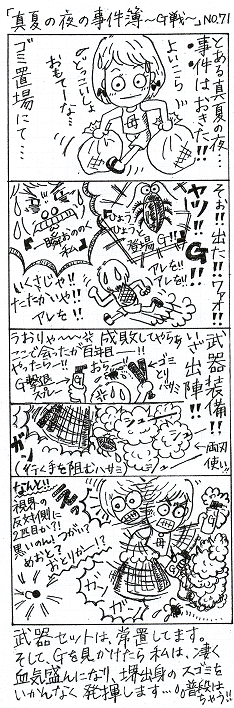 「真夏の夜の事件簿〜G戦〜」NO.71
とある真夏の夜…
事件はおきた!!
よいこら
どっこいしょ
おもてーな…
母
ゴミ置場にて…
そぉ!!出た!!ワァオ!!
ヤツ!!G!!
ひょう
ひょうと
登場G!!
一瞬おののく
私
いくさじゃ!!
たたかいじゃ!!
アレを!!
アレを!!
アレを!!
武器装備!!
いざ出陣!!
うおりゃ〜〜 成敗してやらぁ
ここで会ったが百年目ー!!
やったらー!!
おら
G撃退
スプレー
ゴミ
とり
バサミ
ガン
シュー
両刃
使い!!
(行く手を阻むハサミ)
なんと!!
視界の
反対側に
2匹目か?!
黒いのん!つがい?
めおと?
おとりかー!?
えっ
ガン
ガン
シュー
武器セットは、常置してます。
そして、Gを見かけたら私は、凄く
血気盛んになり、堺出身のスゴミを
いかんなく発揮します…。普段は
ちゃう!!